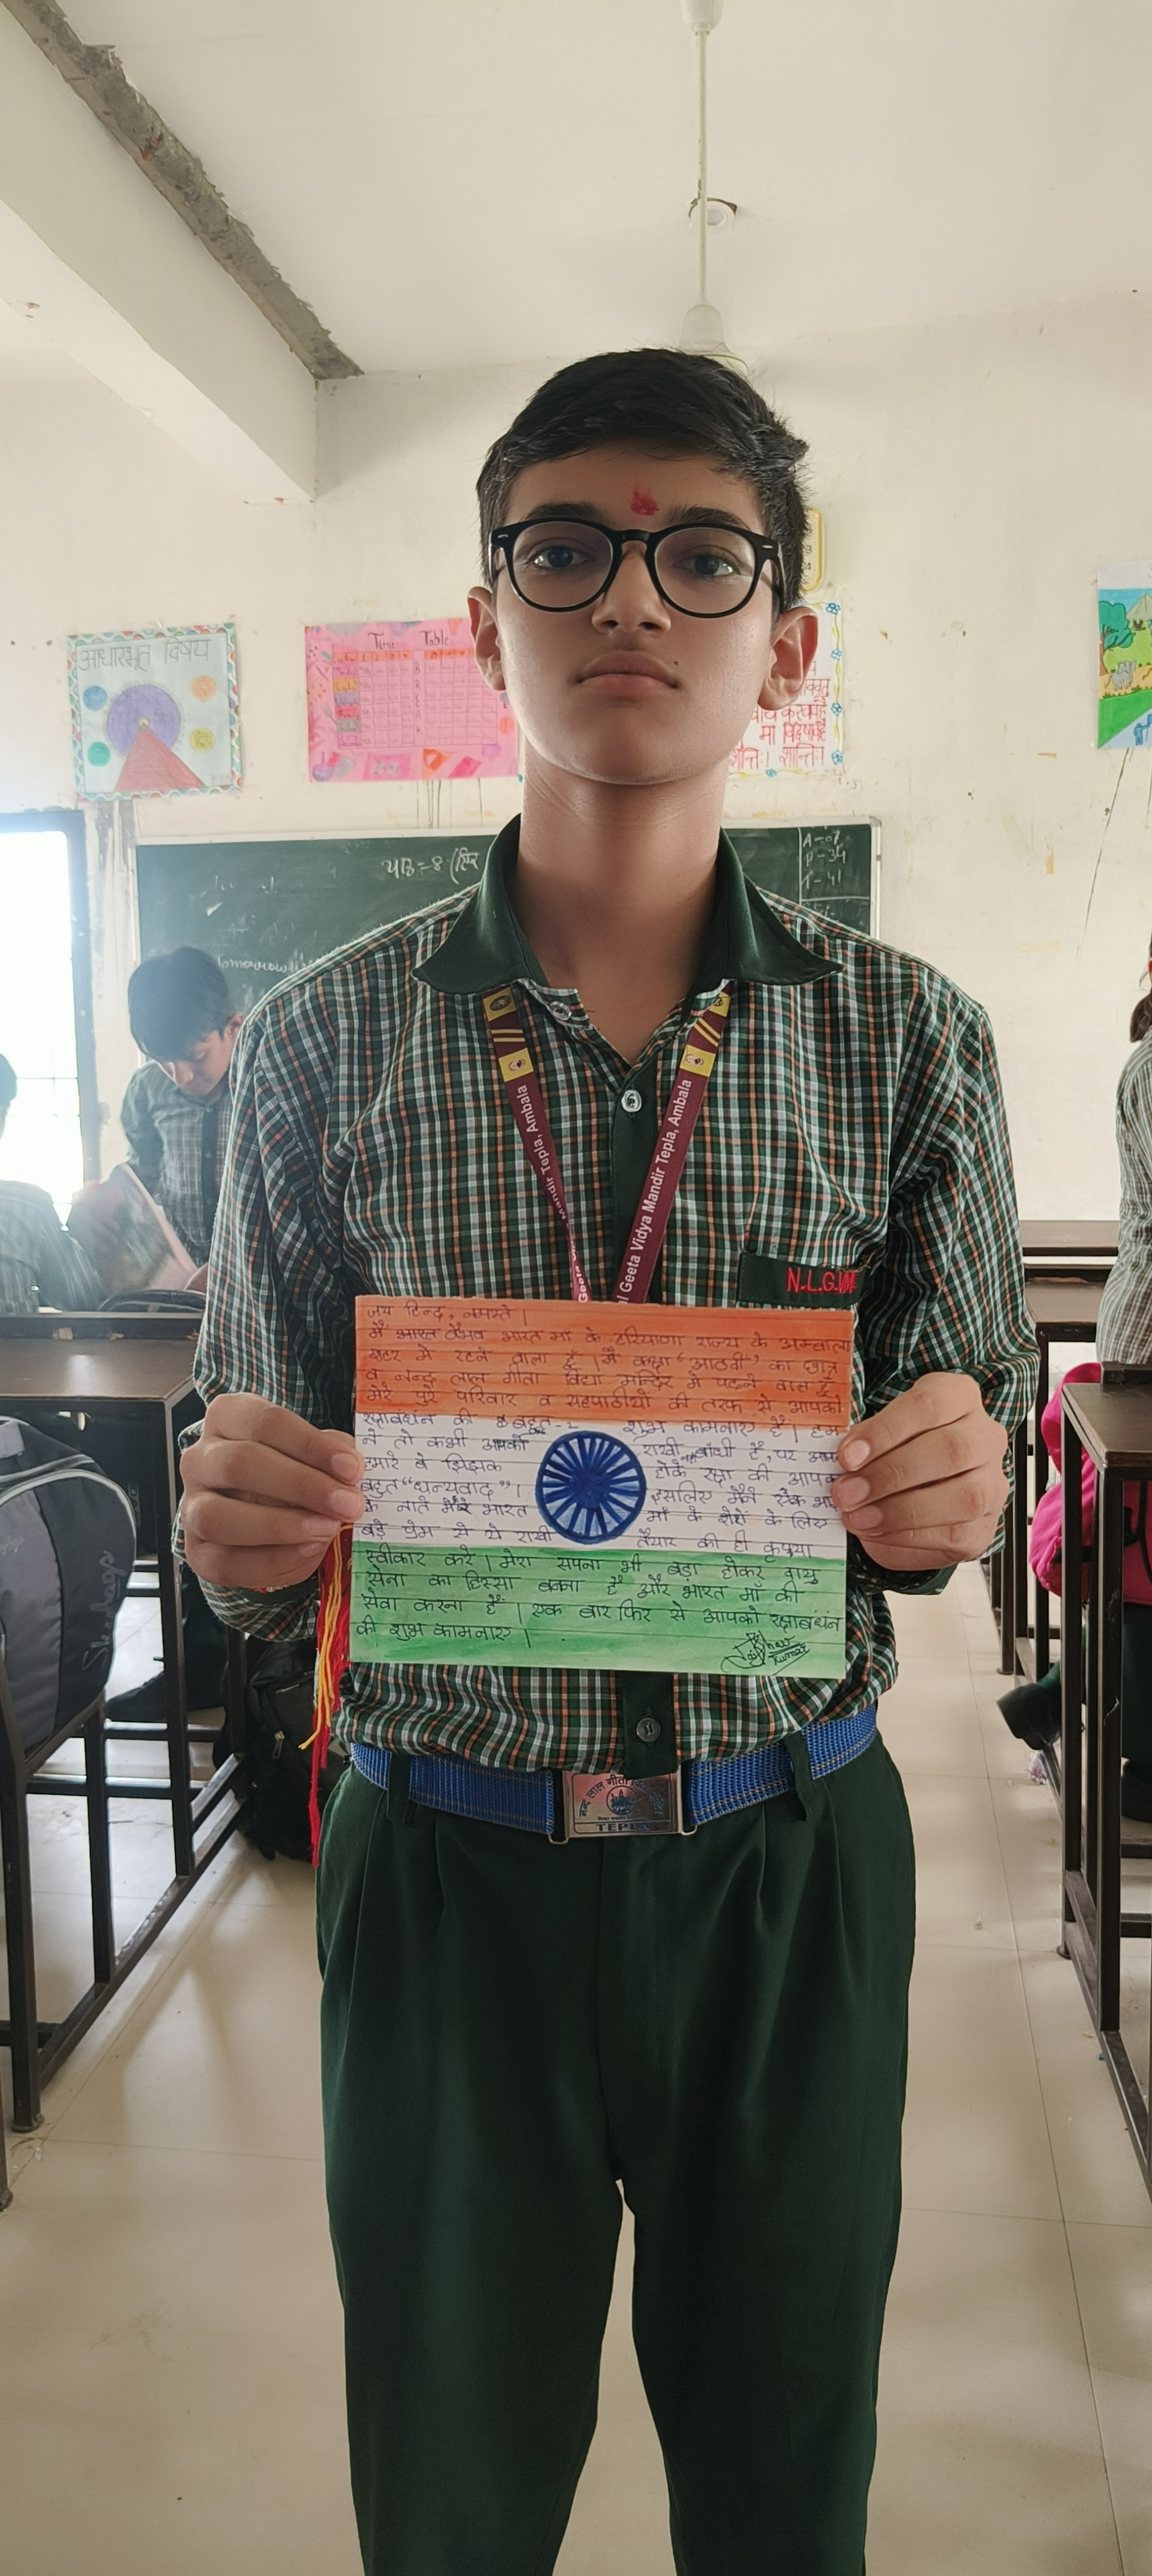 आधारभूत विषय
Time Table
मा विद्विषावहै
शान्ति: ! शान्ति: !
पाठ-8
A-07
P-34
T-41
Tomorrow
Geeta Vidya Mandir Tepla, Ambala
Mandir Tepla, Ambala
N.L.G.V.M
जय हिन्द, नमस्ते |
मैं भारत वैभव भारत माँ के हरियाणा राज्य के अम्बाला
शहर मे रहने वाला हूँ | मैं कक्षा "आठवी" का छात्र
व नन्द लाल गीता विद्या मन्दिर मे पढने वाला हूँ
मेरे पुरे परिवार व सहपाठीयो की तरफ से आपको
रक्षाबंधन की बहुत-2 शुभ कामनाएँ है | हम
ने तो कभी आपको राखी नही बाँधी है, पर आपने
हमारे बे झिझक होके रक्षा की आपका
बहुत "धन्यवाद" | इसलिए मैंने एक भाई
के नाते मेरे भारत माँ के शेरो के लिए
बड़े प्रेम से ये राखी तैयार की ही कृप्या
स्वीकार करे | मेरा सपना भी बड़ा होकर वायु
सेना का हिस्सा बनना है और भारत माँ की
सेवा करना हैं | एक बार फिर से आपको रक्षाबंधंन
की शुभ कामनाए |
Kumar
TEPLA